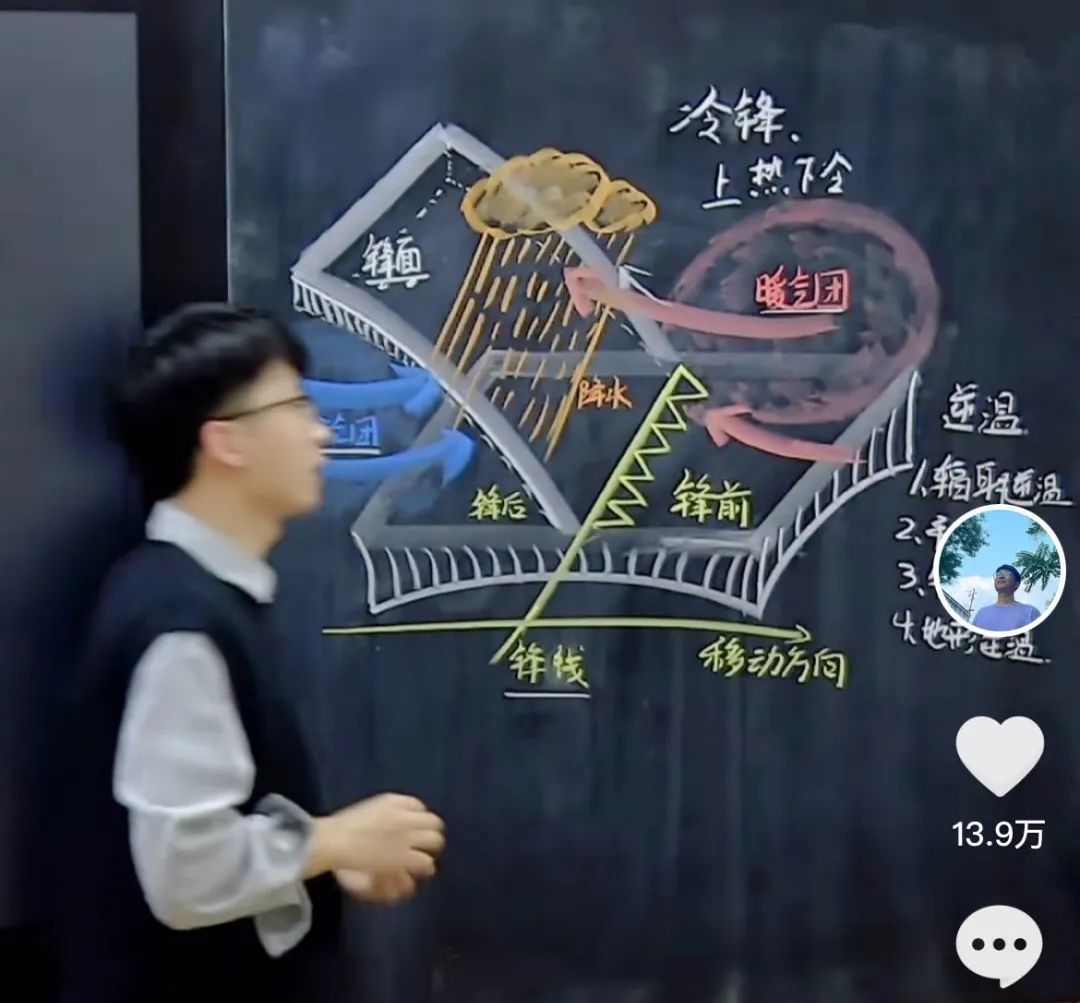 冷锋、
上热下冷
锋面
暖气团
气团
降水
逆温
1.辐射逆温
锋后
锋前
2.
3.
4.地形逆温.
锋线
移动方向
13.9万